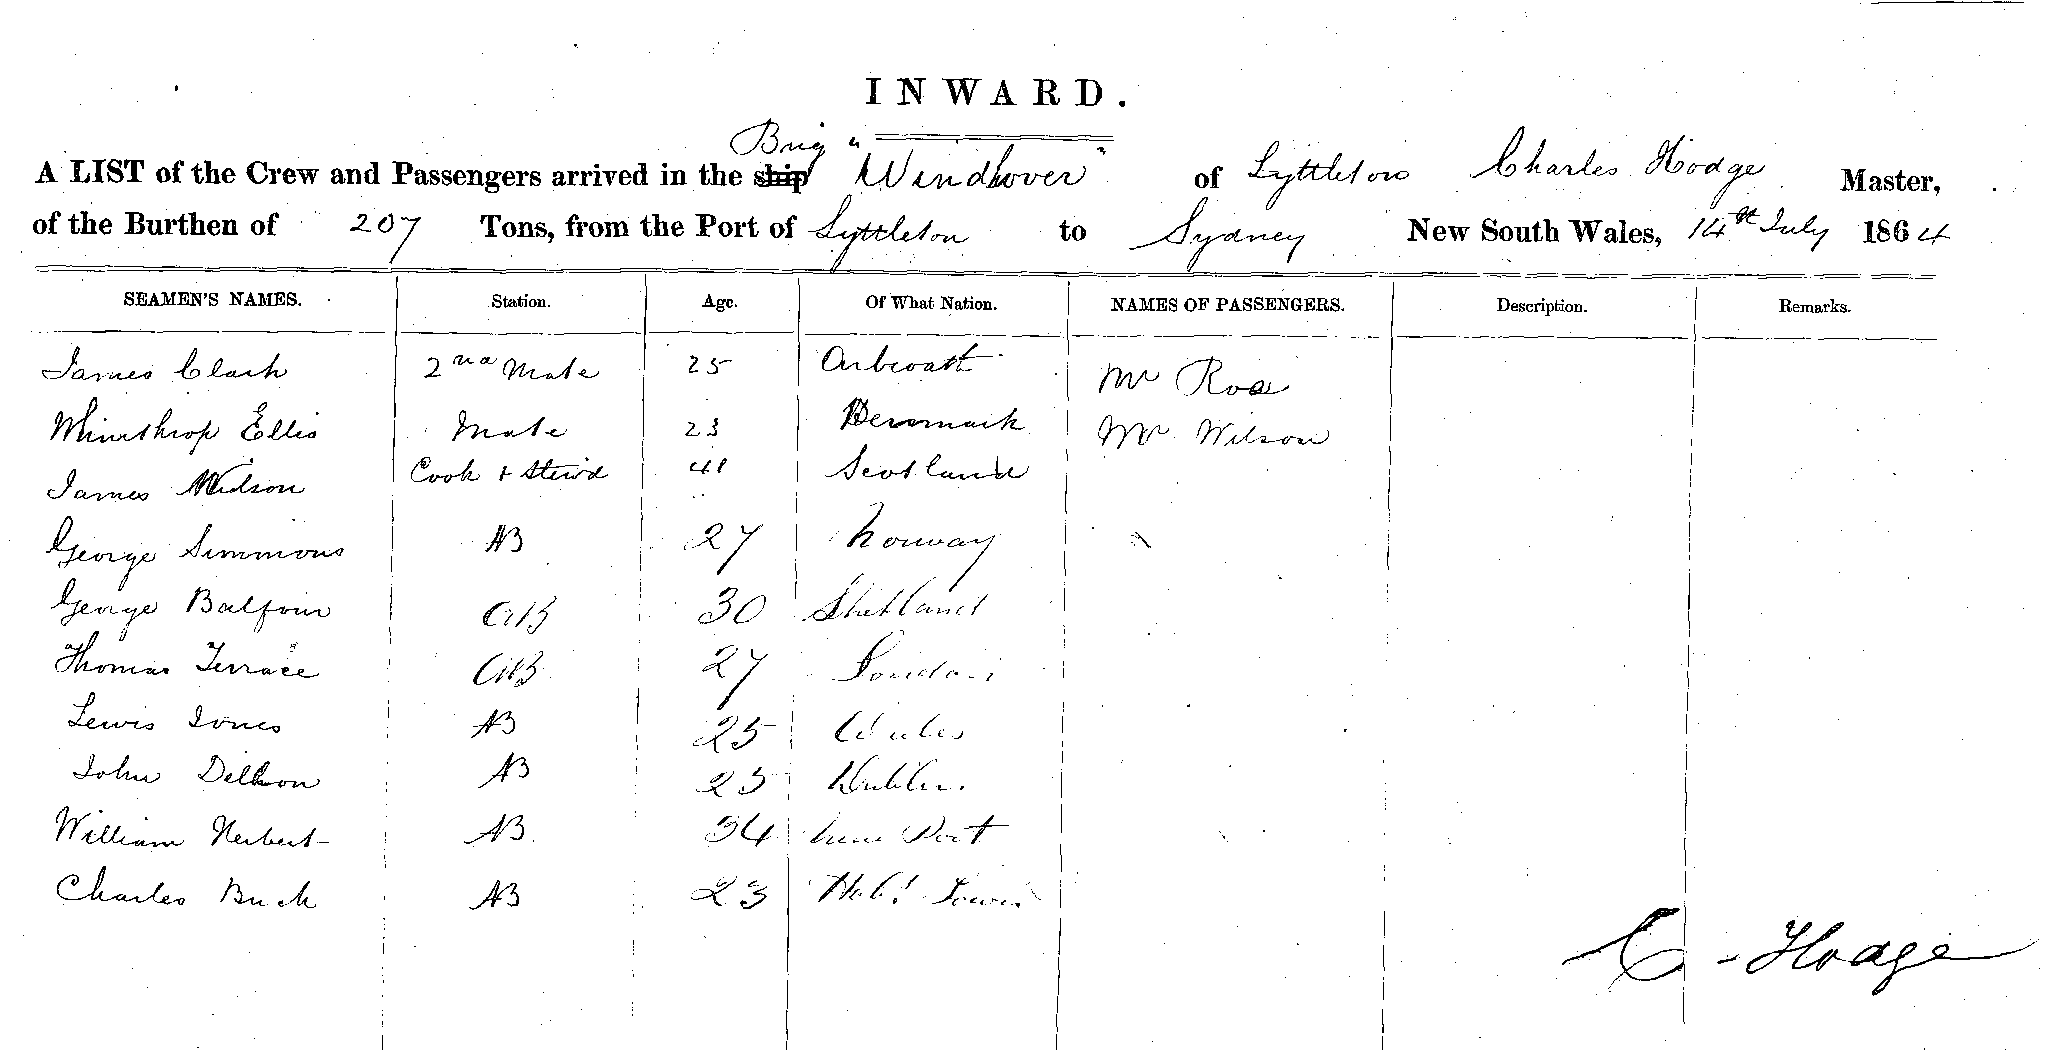 INWARD.
Brig
A LIST of the Crew and Passengers arrived in the ship "Windhover" of Lyttleton Charles Hodge Master,
of the Burthen of 207 Tons, from the Port of Lyttleton to Sydney New South Wales, 14th July 1864
SEAMEN'S NAMES. Station. Age. Of What Nation. NAMES OF PASSENGERS. Description. Remarks.
James Clark 2nd Mate 25 Arbroath Mr Roa
Winthrop Ellis Mate 23 Denmark Mr Wilson
James Wilson Cook & Stewd 41 Scotland
George Simmons AB 27 Norway
George Balfour AB 30 Shetland
Thomas Terrace AB 27 London
Lewis Jones AB 25 Wales
John Dellon AB 25 Dublin
William Herbert AB 34
Charles Buck AB 23 Hobt Town
C. Hodge